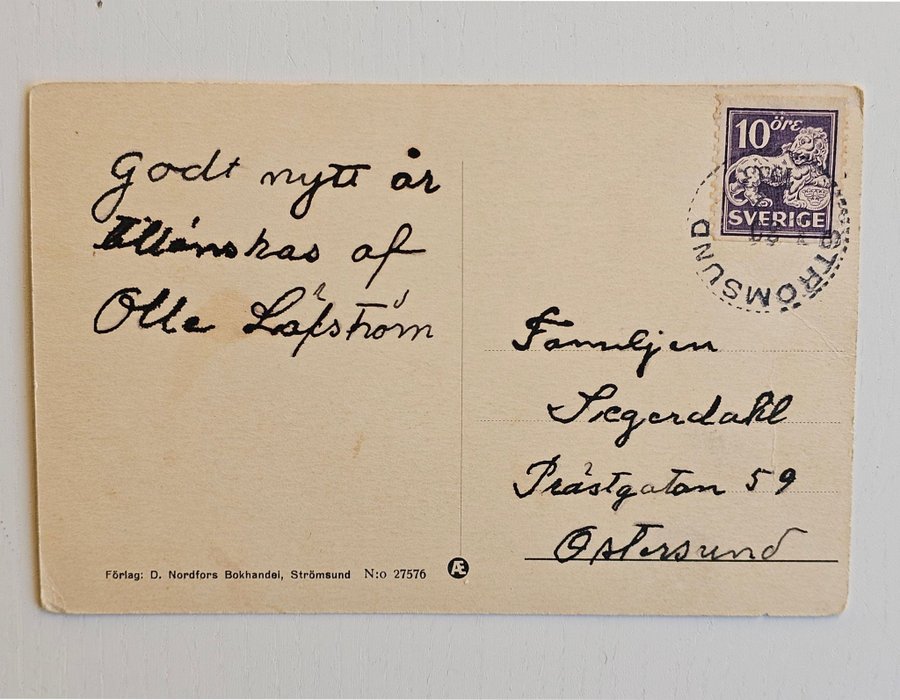 Godt nytt år
tillönskas af
Olle Löfström
10 öre
SVERIGE
STRÖMSUND
Familjen
Segerdahl
Prästgatan 59
Östersund
Förlag: D. Nordfors Bokhandel, Strömsund N:o 27576
Æ